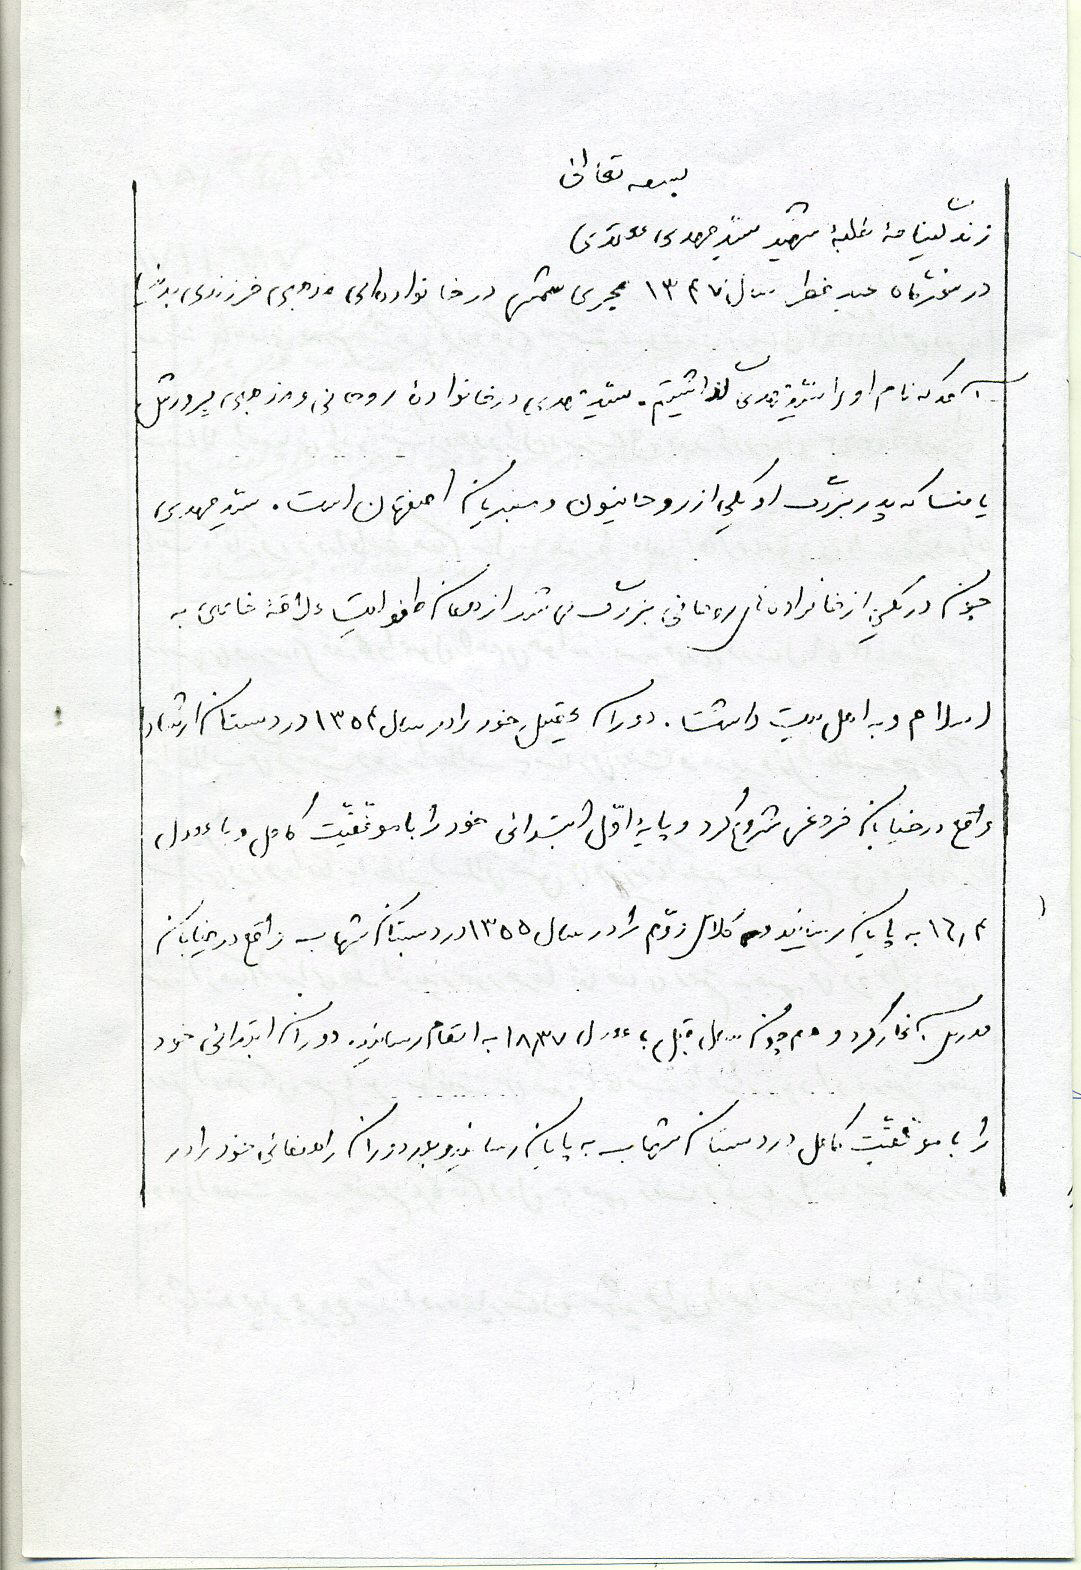 بسمه تعالی
زندگینامهٔ طلبهٔ شهید سید مهدی
در سحرگاه عید فطر سال ۱۳۴۷ هجری شمسی در خانواده‌ای مذهبی فرزندی بدنیا
آمد که نام او را سید مهدی گذاشتیم. سید مهدی در خانوادهٔ روحانی و مذهبی پرورش
یافت که پدر بزرگ او یکی از روحانیون و منبریان اصفهان است. سید مهدی
چون در یکی از خانواده‌های روحانی بزرگ می شد از همان طفولیت علاقهٔ خاصی به
اسلام و به اهل بیت داشت. دوران تحصیل خود را در سال ۱۳۵۴ در دبستان ارشاد
واقع در خیابان فروغی شروع کرد و پایهٔ اوّل ابتدائی خود را با موفقیّت کامل و با معدل
۱۶٫۴ به پایان رسانید و کلاس دوّم را در سال ۱۳۵۵ در دبستان شهاب واقع در خیابان
مدرس آغاز کرد و هم چون سال قبل با معدل ۱۸٫۳۷ به اتمام رسانید. دوران ابتدائی خود
را با موفقیّت کامل در دبستان شهاب به پایان رسانید و دوران راهنمائی خود را در